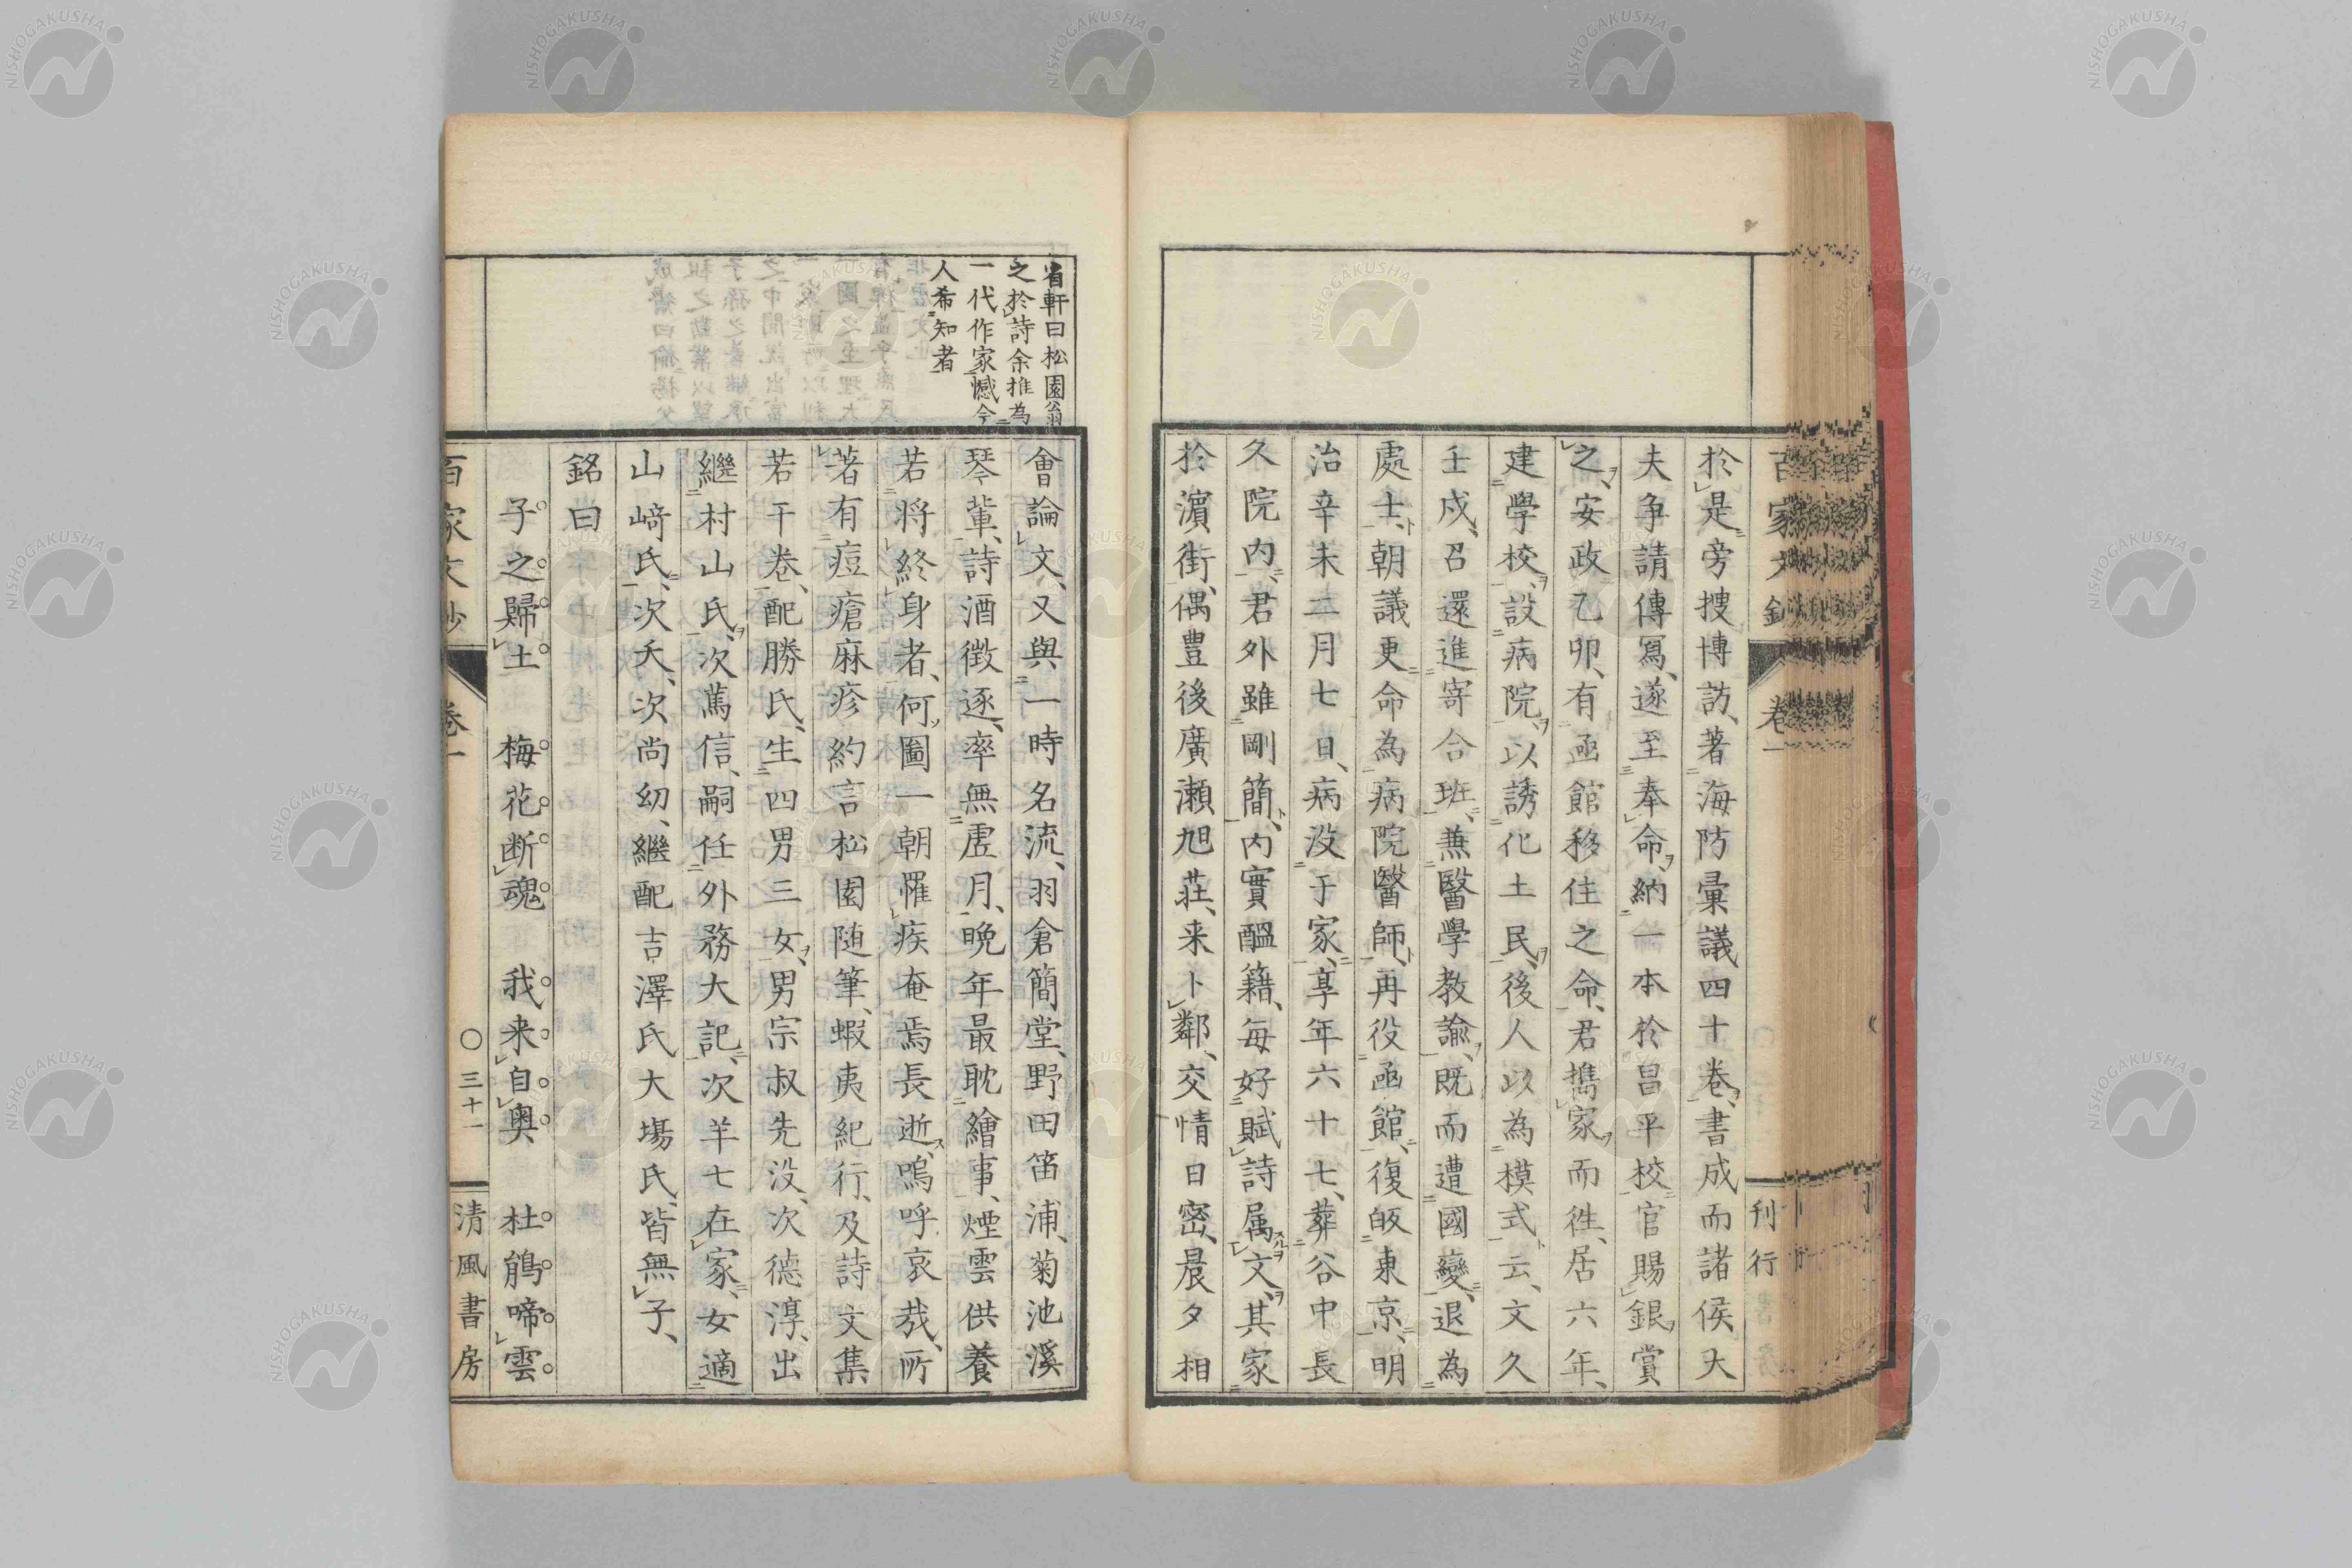 百家文鈔
卷一
刊行
於是旁搜博訪、著海防彙議四十卷、書成而諸侯大
夫争請傳寫、遂至奉命、納一本於昌平校、官賜銀賞
之、安政乙卯、有函館移住之命、君攜家而徃、居六年、
建學校、設病院、以誘化土民、後人以為模式云、文久
壬戌、召還進寄合班、兼醫學教諭、既而遭國變、退為
處士、朝議更命為病院醫師、再役函館、復皈東京、明
治辛未二月七日、病没于家、享年六十七、葬谷中長
久院内、君外雖剛簡、内實醞籍、毎好賦詩属文、其家
於濵街、偶豊後廣瀬旭荘、来卜鄰、交情日密、晨夕相
省軒曰松園翁
之於詩余推為
一代作家憾今
人希知者
會論文、又與一時名流、羽倉簡堂、野田笛浦、菊池溪
琴輩、詩酒徴逐、率無虚月、晩年最耽繪事、煙雲供養
若將終身者、何圖一朝罹疾奄焉長逝、嗚呼哀哉、所
著有痘瘡麻疹約言松園随筆、蝦夷紀行、及詩文集
若干卷、配勝氏、生四男三女、男宗叔先没、次德淳、出
繼村山氏、次萬信、嗣任外務大記、次羊七在家、女適
山﨑氏、次夭、次尚幼、繼配吉澤氏大塲氏、皆無子、
銘曰
子之歸土　梅花断魂　我来自奥　杜鵑啼雲
百家文鈔
卷一
○三十一
清風書房
NISHOGAKUSHA